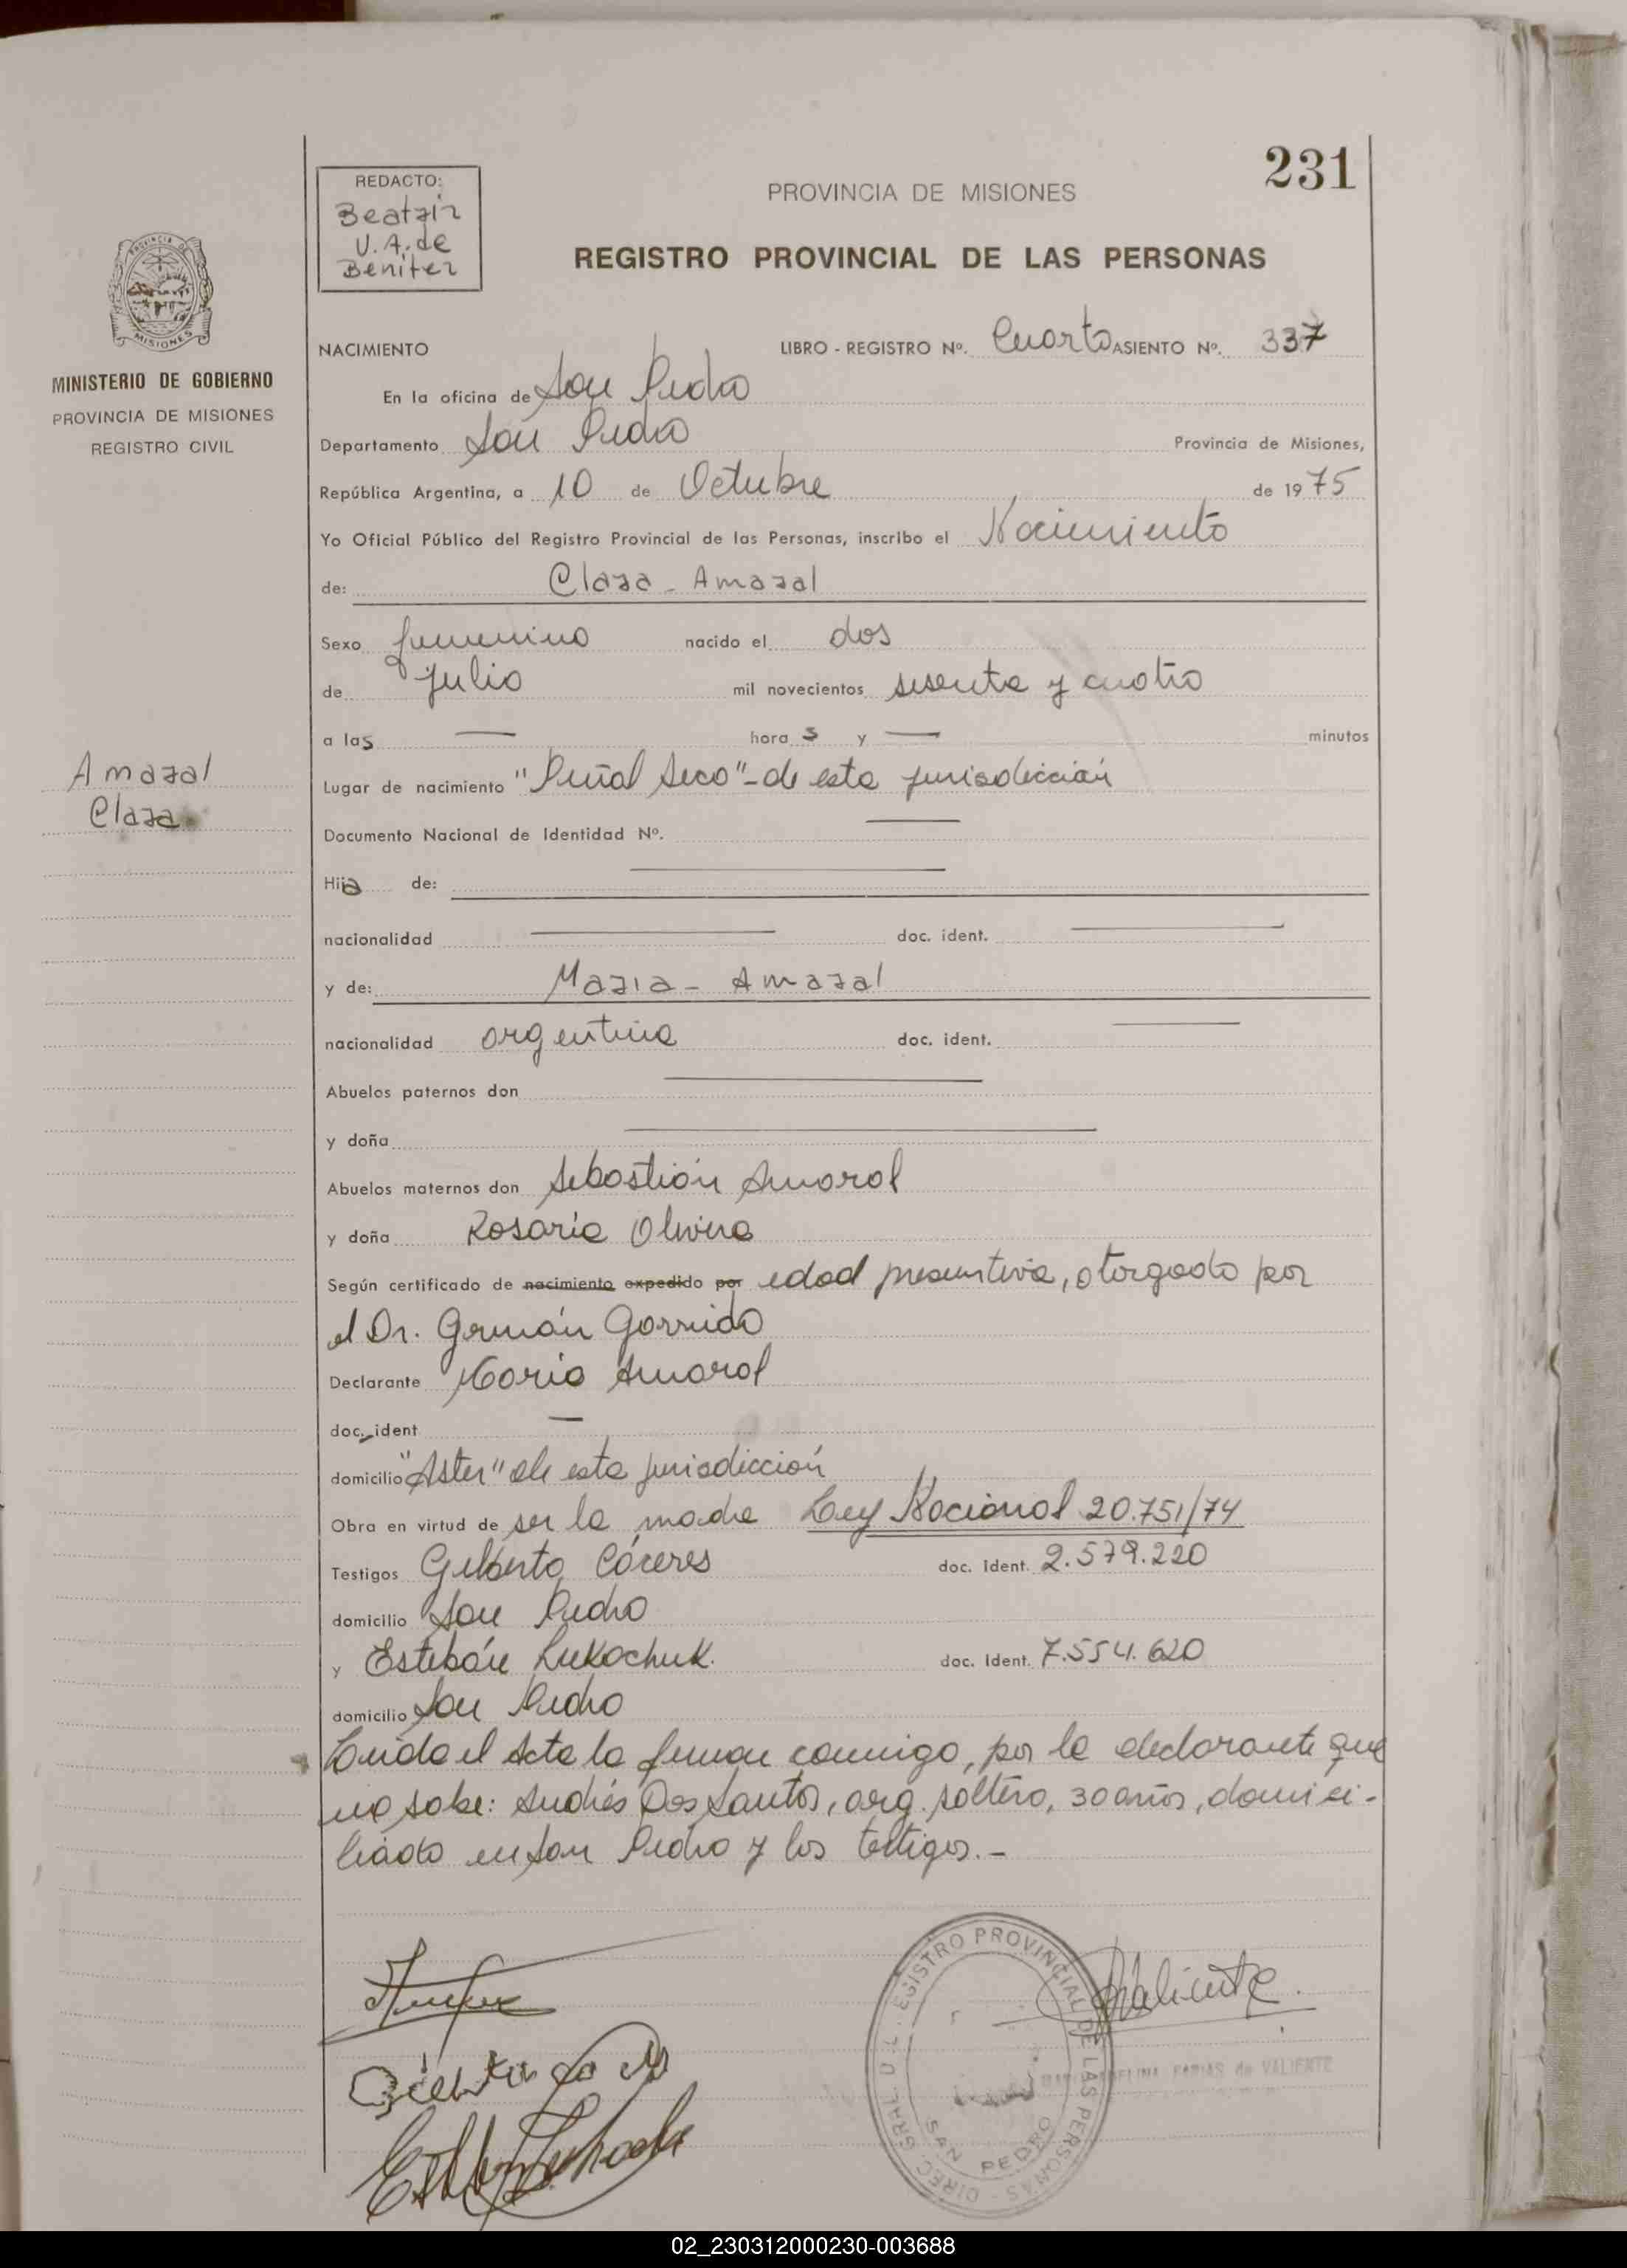 231
REDACTO:
Beatriz
V. A. de
Benitez
PROVINCIA DE MISIONES
REGISTRO PROVINCIAL DE LAS PERSONAS
PROVINCIA DE
MISIONES
MINISTERIO DE GOBIERNO
PROVINCIA DE MISIONES
REGISTRO CIVIL
NACIMIENTO LIBRO - REGISTRO Nº. Cuarto ASIENTO Nº. 337
En la oficina de San Pedro
Departamento San Pedro Provincia de Misiones,
República Argentina, a 10 de Octubre de 1975
Yo Oficial Público del Registro Provincial de las Personas, inscribo el Nacimiento
de: Clara - Amaral
Sexo femenino nacido el dos
de julio mil novecientos sesenta y cuatro
a las — horas y — minutos
Amaral
Clara
Lugar de nacimiento "Piñal Seco" - de esta jurisdicción
Documento Nacional de Identidad Nº. —
Hija de: —
nacionalidad — doc. ident. —
y de: Maria - Amaral
nacionalidad argentina doc. ident. —
Abuelos paternos don —
y doña —
Abuelos maternos don Sebastián Amaral
y doña Rosaria Olivera
Según certificado de nacimiento expedido por edad presuntiva, otorgado por
el Dr. Germán Garrido
Declarante Maria Amaral
doc. ident —
domicilio "Aster" de esta jurisdicción
Obra en virtud de ser la madre Ley Nacional 20.751/74
Testigos Gilberto Cáceres doc. ident. 2.579.220
domicilio San Pedro
y Estebán Lukachuk. doc. ident. 7.554.620
domicilio San Pedro
Leída el Acta la firman conmigo, por la declarante que
no sabe: Andrés Dos Santos, arg. soltero, 30 años, domici-
liado en San Pedro y los testigos. -
Valiente
FARIAS de VALIENTE
DIREC. GRAL. DEL REGISTRO PROVINCIAL DE LAS PERSONAS
SAN PEDRO
02_230312000230-003688